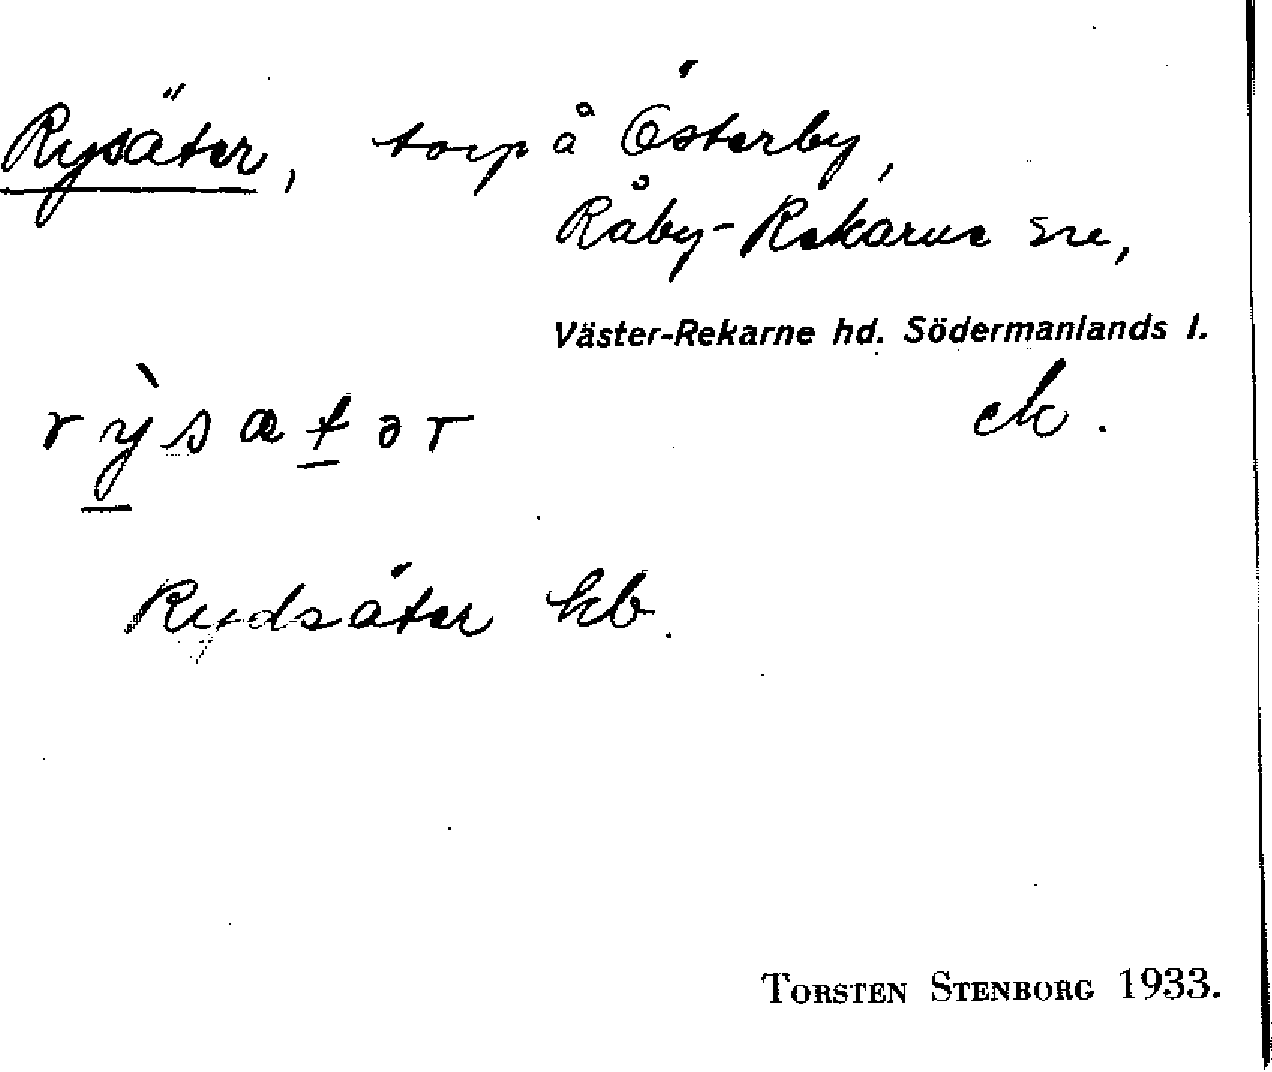 Rysäter, torp å Österby,
Råby-Rekarne sn,
Väster-Rekarne hd. Södermanlands l.
ek.
rỳsætər
Rydsäter kb.
TORSTEN STENBORG 1933.